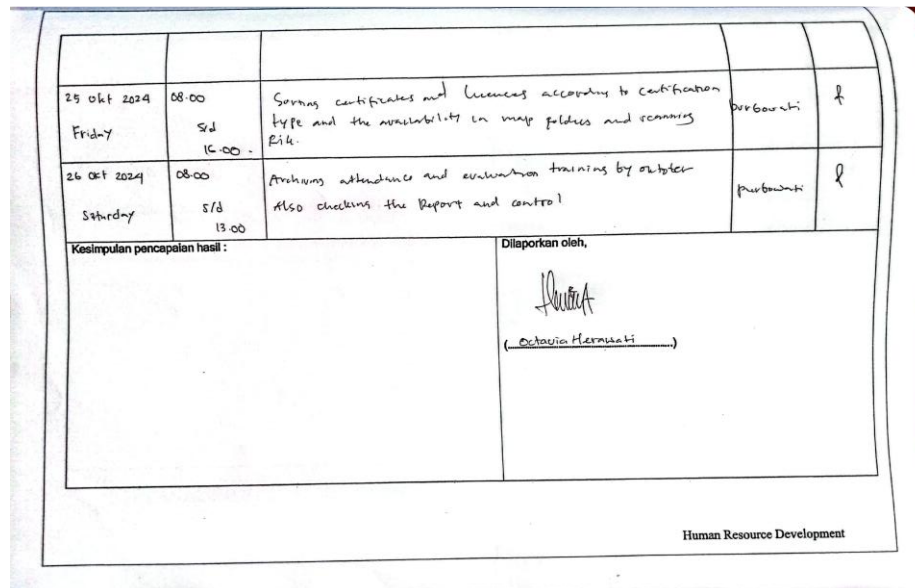 25 okt 2024
Friday
08.00
s/d
16.00.
Sorting certificates and licences according to certification
type and the availability in map folders and scanning
purbowati
26 okt 2024
Saturday
08.00
s/d
13.00
Archiving attendance and evaluation training by
Also checking the Report and control
purbowati
Kesimpulan pencapaian hasil :
Dilaporkan oleh,
(Octavia Herawati)
Human Resource Development